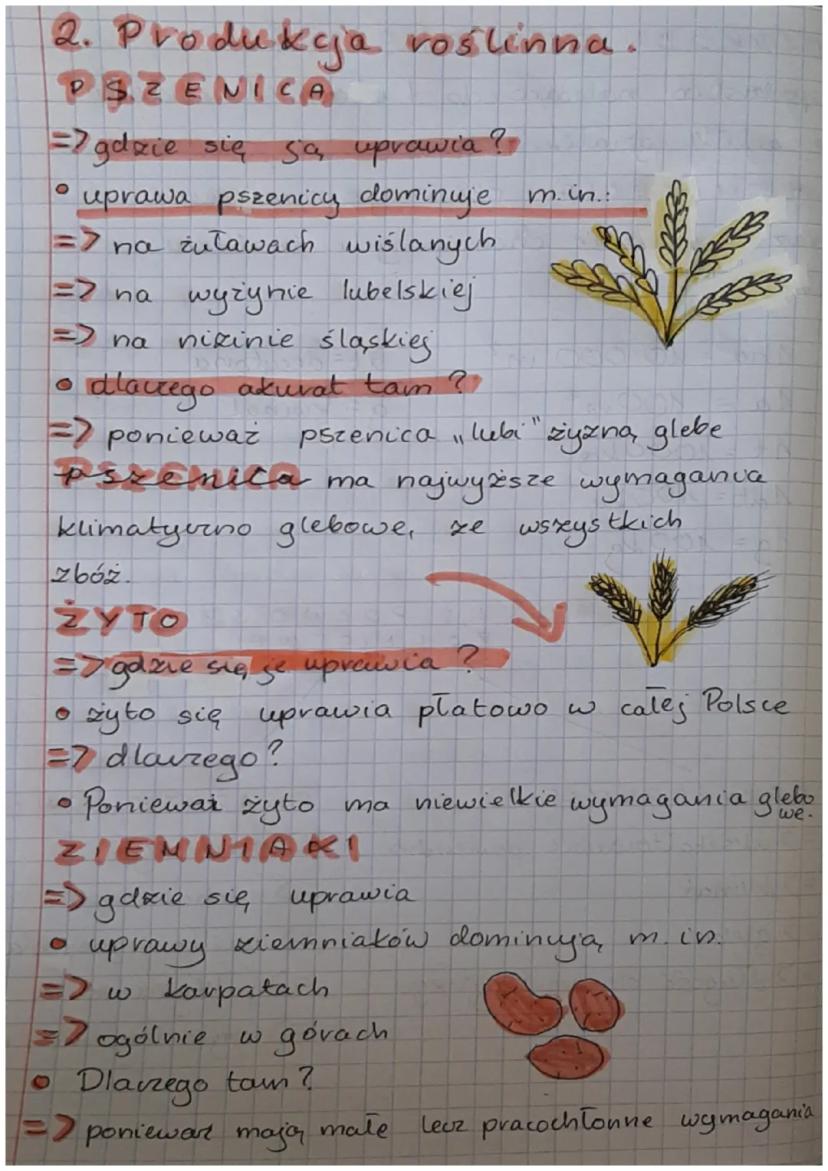 2. Produkcja roślinna.
PSZENICA
=> gdzie się są uprawia?
• uprawa pszenicy dominuje m.in.:
=> na żuławach wiślanych
=> na wyżynie lubelskiej
=> na nizinie śląskiej
• dlaczego akurat tam?
=> ponieważ pszenica „lubi" żyzną glebe
PSZENICA ma najwyższe wymagania
klimatyczno glebowe, ze wszystkich
zbóż.
ŻYTO
=> gdzie się je uprawia?
• żyto się uprawia płatowo w całej Polsce
=> dlaczego?
• Ponieważ żyto ma niewielkie wymagania glebowe.
ZIEMNIAKI
=> gdzie się uprawia
• uprawy ziemniaków dominują m.in.
=> w karpatach
=> ogólnie w górach
• Dlaczego tam?
=> ponieważ mają małe lecz pracochłonne wymagania